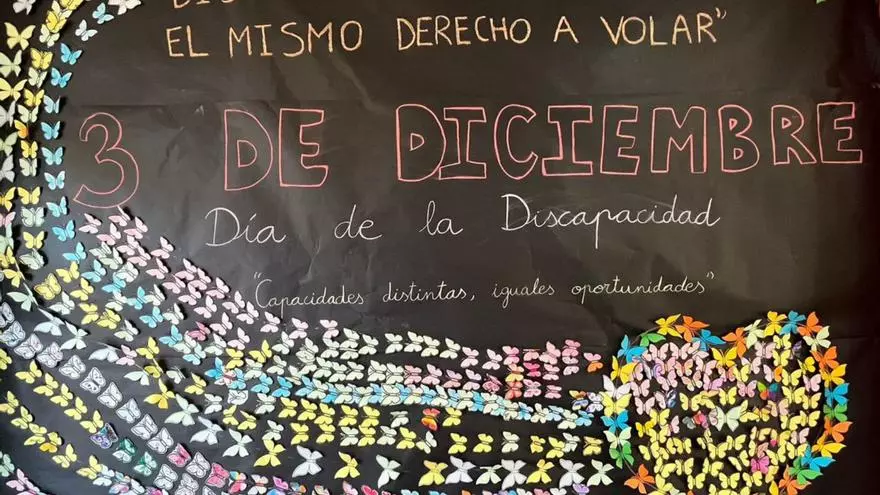 EL MISMO DERECHO A VOLAR"
3 DE DICIEMBRE
Día de la Discapacidad
"Capacidades distintas, iguales oportunidades"